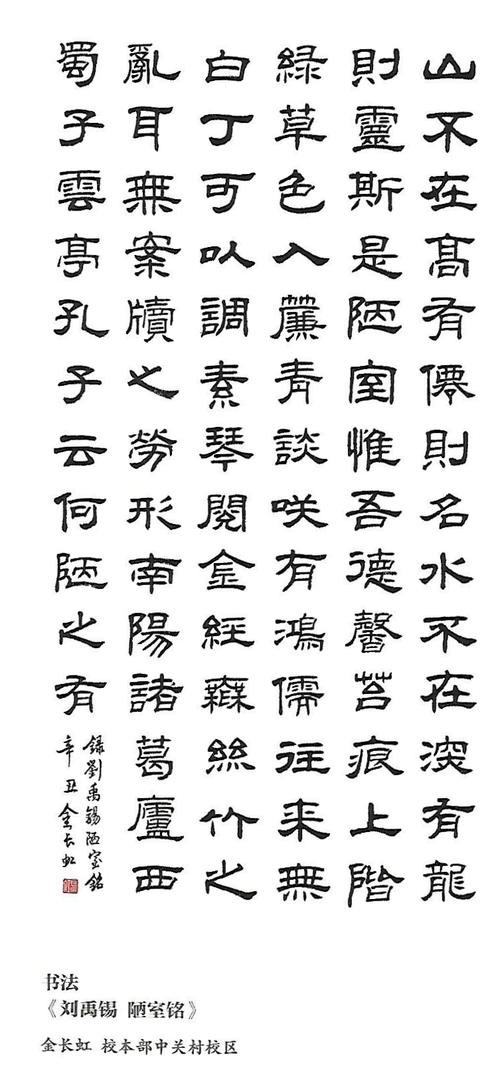 山不在髙有僊則名水不在深有龍
則靈斯是陋室惟吾德馨苔痕上階
綠草色入簾青談咲有鴻儒往来無
白丁可以調素琴閱金經無絲竹之
亂耳無案牘之勞形南陽諸葛廬西
蜀子雲亭孔子云何陋之有
録劉禹錫陋室銘
辛丑金长虹
书法
《刘禹锡 陋室铭》
金长虹 校本部中关村校区